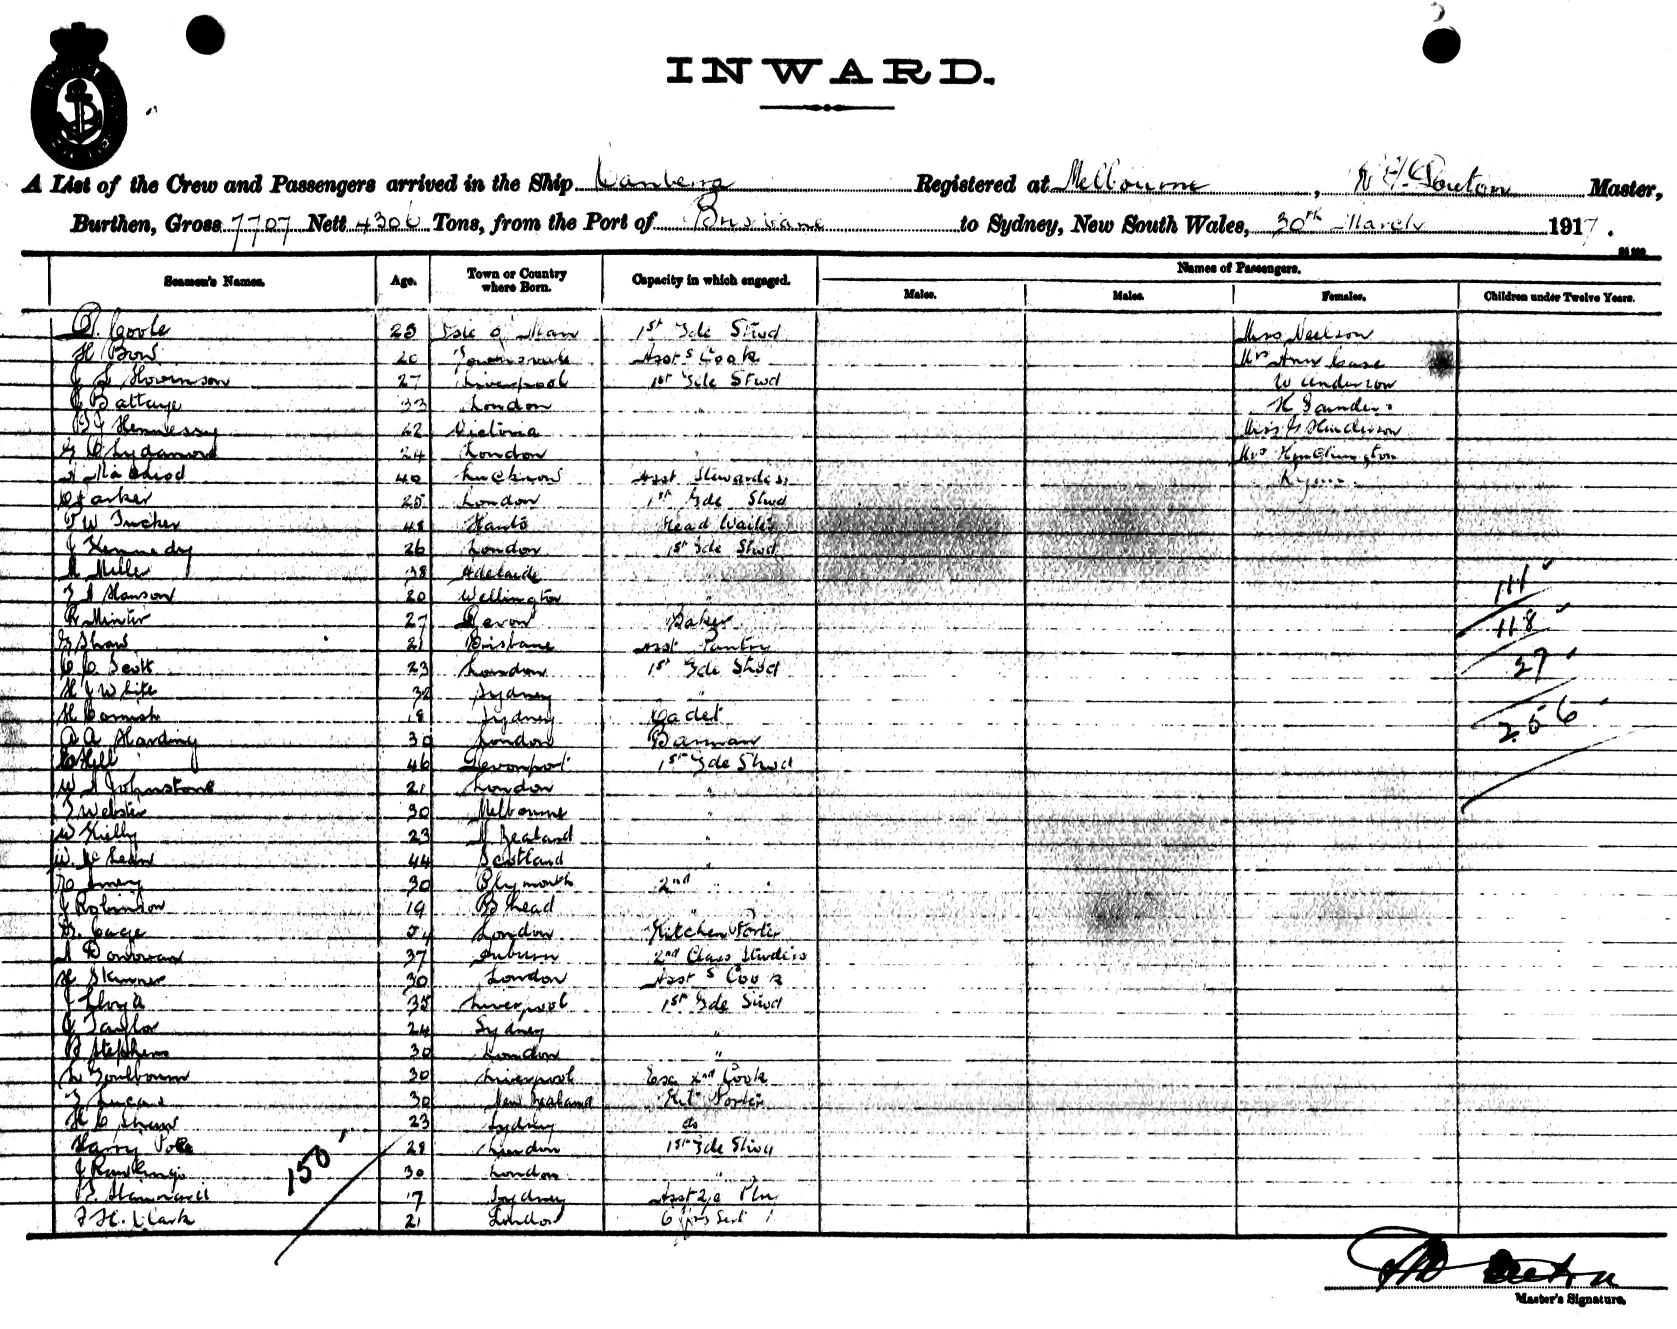 INWARD.
A List of the Crew and Passengers arrived in the Ship Canberra Registered at Melbourne, Master,
Burthen, Gross 7707 Nett 4306 Tons, from the Port of Brisbane to Sydney, New South Wales, 30th March 1917.
Seamen's Names. Age. Town or Country where Born. Capacity in which engaged. Names of Passengers.
Males. Males. Females. Children under Twelve Years.
Coole 25 Isle o' Man 1st Gde Stwd Miss Neelson
H Bow 20 Townsville Asst S Cook Mrs Ann Case
27 Liverpool 1st Gde Stwd W Anderson
Battaye 33 London " H
Hennessy 62 Victoria " Miss G Henderson
24 London " Mrs
40 Lucknow Asst Stewardess
Parker 25 London 1st Gde Stwd
T W Tucker 48 Hants Head Waiter
J Kennedy 26 London 1st Gde Stwd
Miller 38 Adelaide
Hanson 20 Wellington "
R Minter 27 Devon Baker
G Shaw 21 Brisbane Asst Pantry
C C Scott 23 London 1st Gde Stwd
H J White 32 Sydney "
H Cornish 18 Sydney Cadet
A A Harding 30 London Barman
C Hill 46 Devonport 1st Gde Stwd
W A Johnstone 21 London "
Webster 30 Melbourne "
W Kielly 23 N Zealand "
W. McLean 44 Scotland "
30 Plymouth 2nd "
J Robinson 19 B'head "
G. Cage London Kitchen Porter
A Donovan 37 Auburn 2nd Class Stwdess
H Skinner 30 London Asst S Cook
J Lloyd 35 Liverpool 1st Gde Stwd
J Taylor 24 Sydney "
B Stephens 30 London "
L Goulbourn 30 Liverpool 2nd Cook
Lucas 30 New Zealand Kit Porter
H C Shaw 23 Sydney do
Harry Pole 28 London 1st Gde Stwd
J Rawlings 30 London "
17 Sydney Asst
F H. Clark 21 London
111
118
27
256
150
Master's Signature.